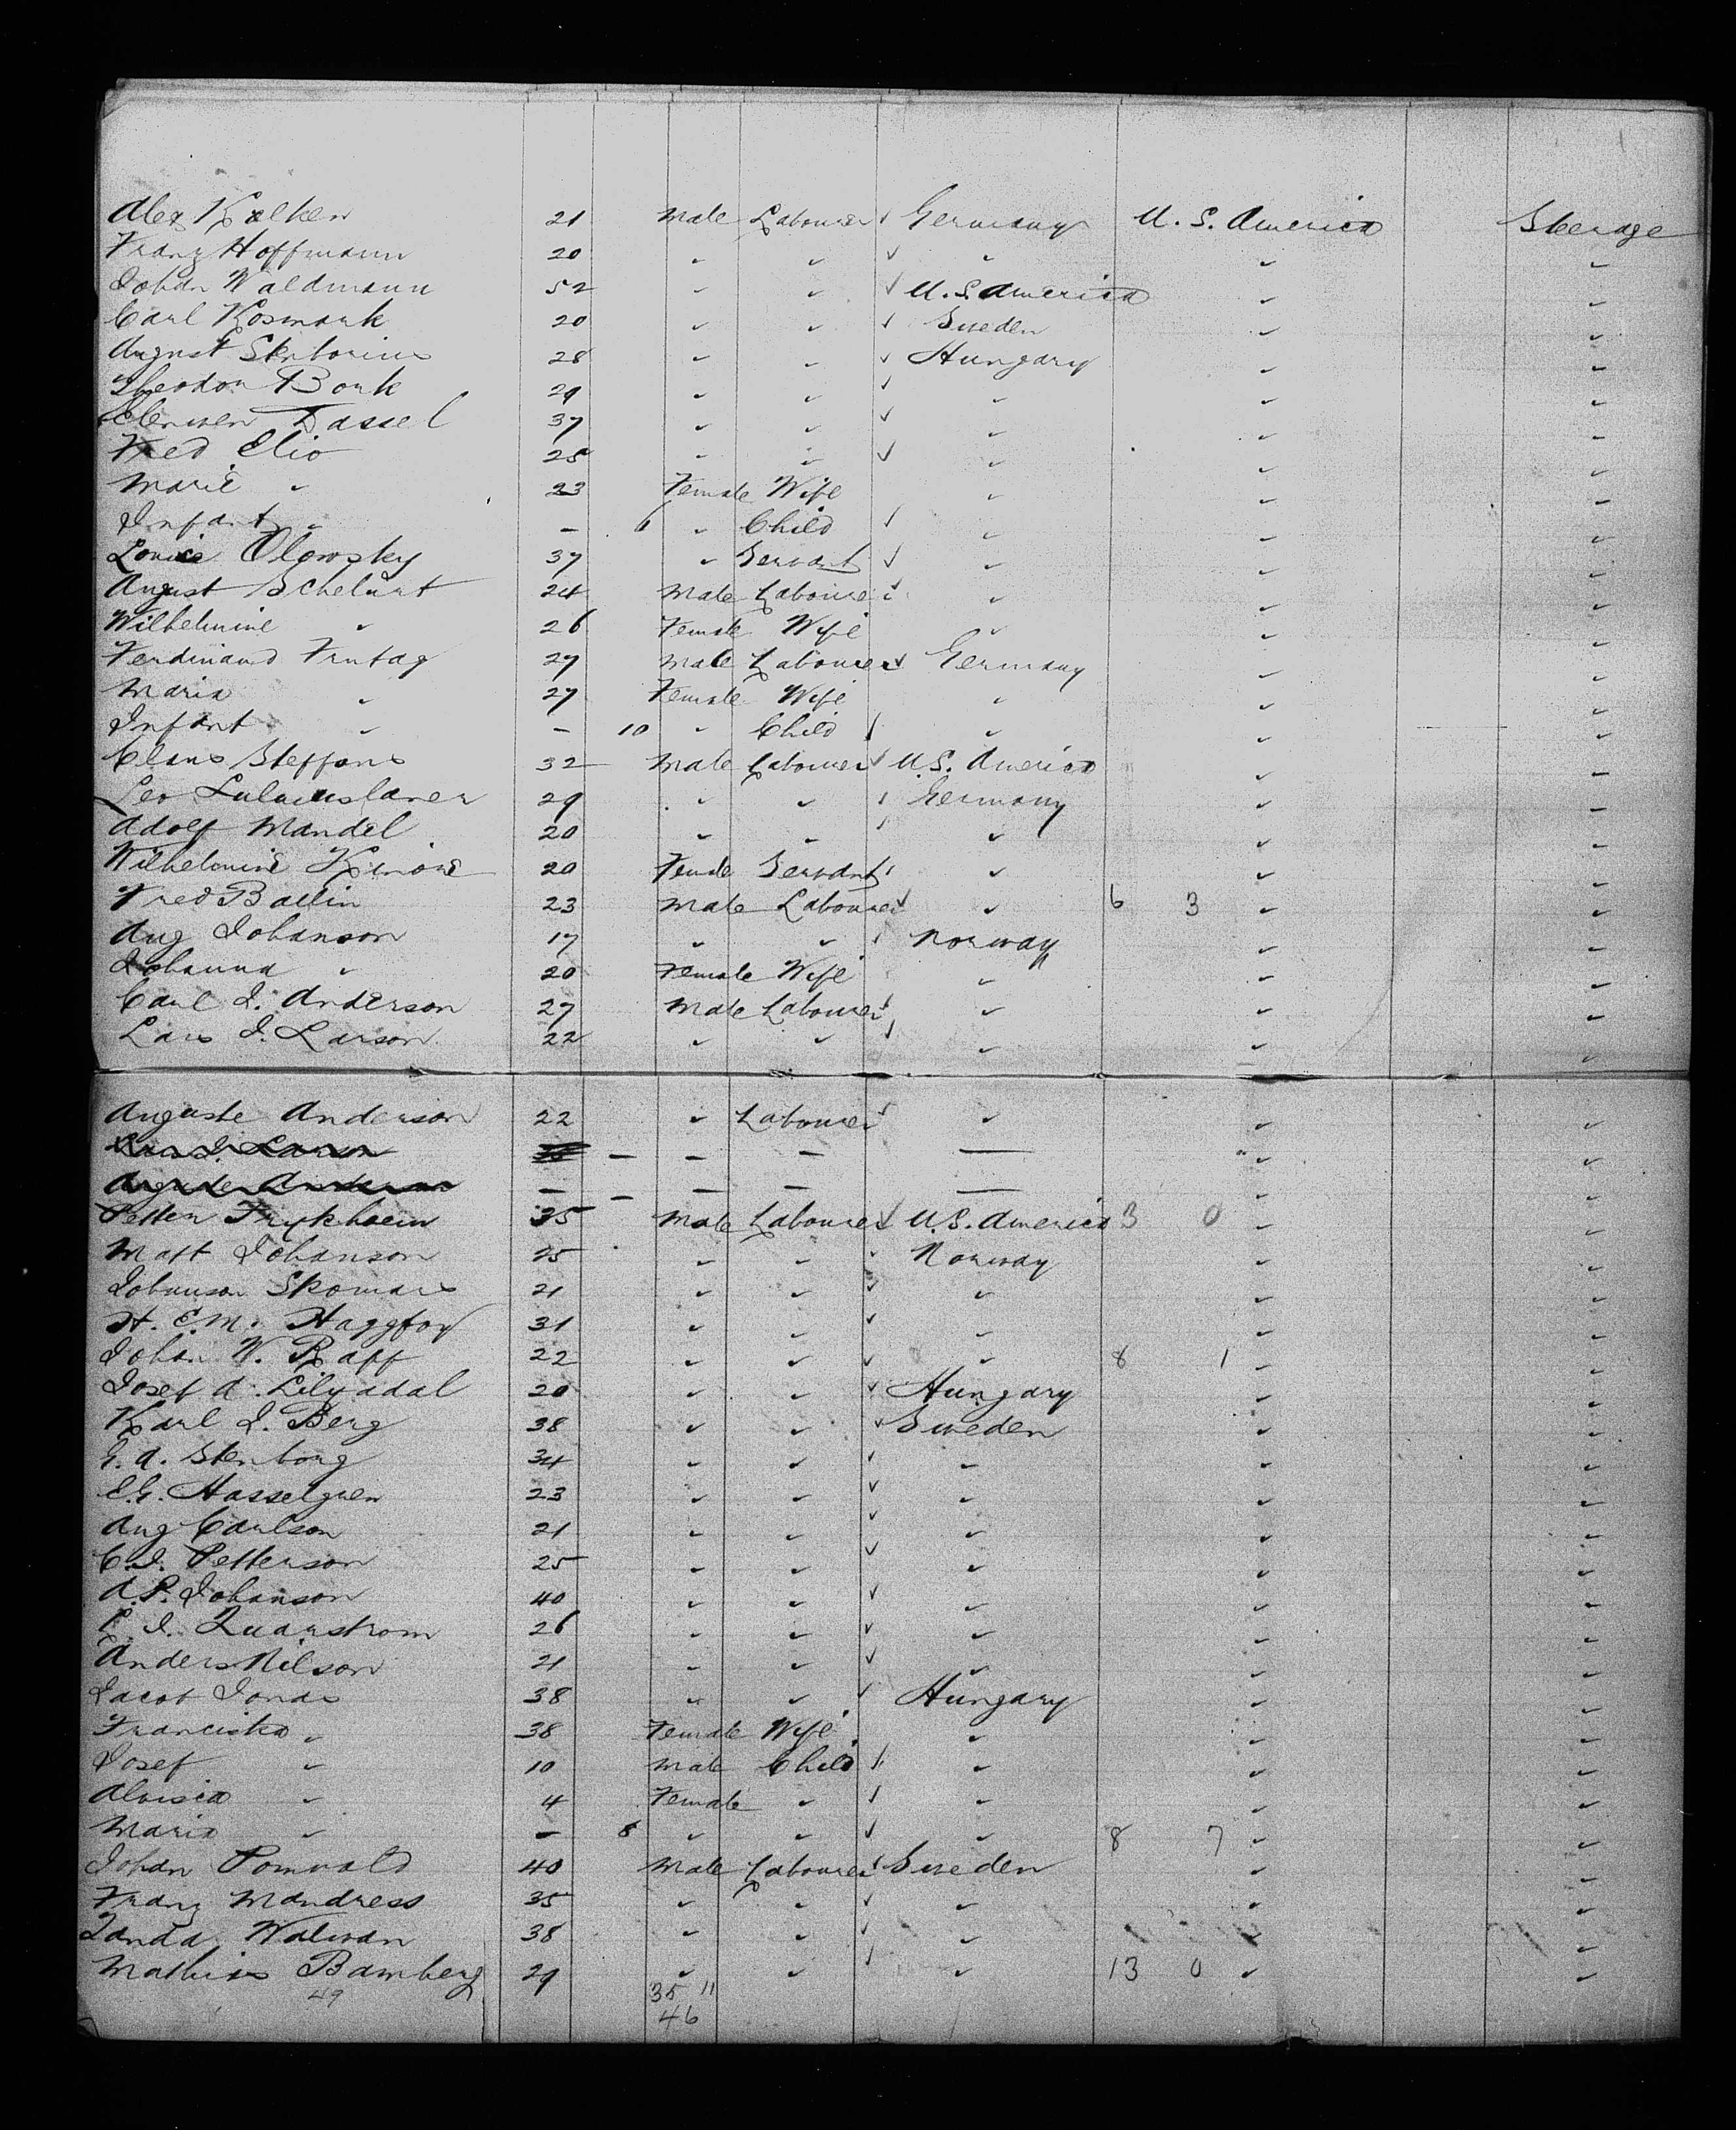 Alex Kolken 21 Male Labourer ✓ Germany U. S. America Steerage
Franz Hoffmann 20 " " ✓ " " "
Johan Waldmann 52 " " ✓ U. S. America " "
Carl Kosmark 20 " " ✓ Sweden " "
August Stentorius 28 " " ✓ Hungary " "
Theodor Bork 29 " " ✓ " " "
Clemen Tassel 37 " " ✓ " " "
Fred Elio 25 " " ✓ " " "
Marie " 23 Female Wife " " "
Infant " — 6 " Child ✓ " " "
Louise Olowsky 37 " Servant ✓ " " "
August Schelunt 24 Male Labourer ✓ " " "
Wilhelmine " 26 Female Wife " " "
Ferdinand Frutag 27 Male Labourer ✓ Germany " "
Maria " 27 Female Wife " " "
Infant " — 10 " Child ✓ " " "
Claus Steffans 32 Male Labourer ✓ U.S. America " "
Leo 29 " " ✓ Germany " "
Adolf Mandel 20 " " ✓ " " "
Wilhelmine 20 Female Servant ✓ " " "
Fred Ballin 23 Male Labourer ✓ " 6 3 " "
Aug Johanson 17 " " ✓ Norway " "
Johanna " 20 Female Wife " " "
Carl J. Anderson 27 Male Labourer ✓ " " "
Lars J. Larson 22 " " ✓ " " "
Auguste Anderson 22 " Labourer ✓ " " "
Lars J. Larson — — — — " "
Auguste Anderson — — — — — " "
Petter Frykholm 35 Male Labourer ✓ U.S. America 3 0 " "
Matt Johanson 25 " " Norway " "
Johanson Skomars 21 " " ✓ " " "
H. E. M. Haggfoy 31 " " ✓ " " "
Johan W. Raff 22 " " ✓ " 8 1 " "
Josef A. Lilyadal 20 " " ✓ Hungary " "
Karl J. Berg 38 " " ✓ Sweden " "
G. A. Stenborg 34 " " ✓ " " "
E. G. Hasselgren 23 " " ✓ " " "
Aug Carlson 21 " " ✓ " " "
C. J. Petterson 25 " " ✓ " " "
A. P. Johanson 40 " " ✓ " " "
P. J. Quarstrom 26 " " ✓ " " "
Anders Nilson 21 " " ✓ " " "
Jacob Jonas 38 " " ✓ Hungary " "
Franciska " 38 Female Wife " " "
Josef " 10 Male Child ✓ " " "
Aloisia " 4 Female " ✓ " " "
Maria " — 8 " " ✓ " 8 7 " "
Johan Pomwald 40 Male Labourer ✓ Sweden " "
Franz Mandress 35 " " ✓ " " "
Janda Walwan 38 " " ✓ " " "
Mathias Bamberg 29 " " ✓ " 13 0 " "
49 35 11
46